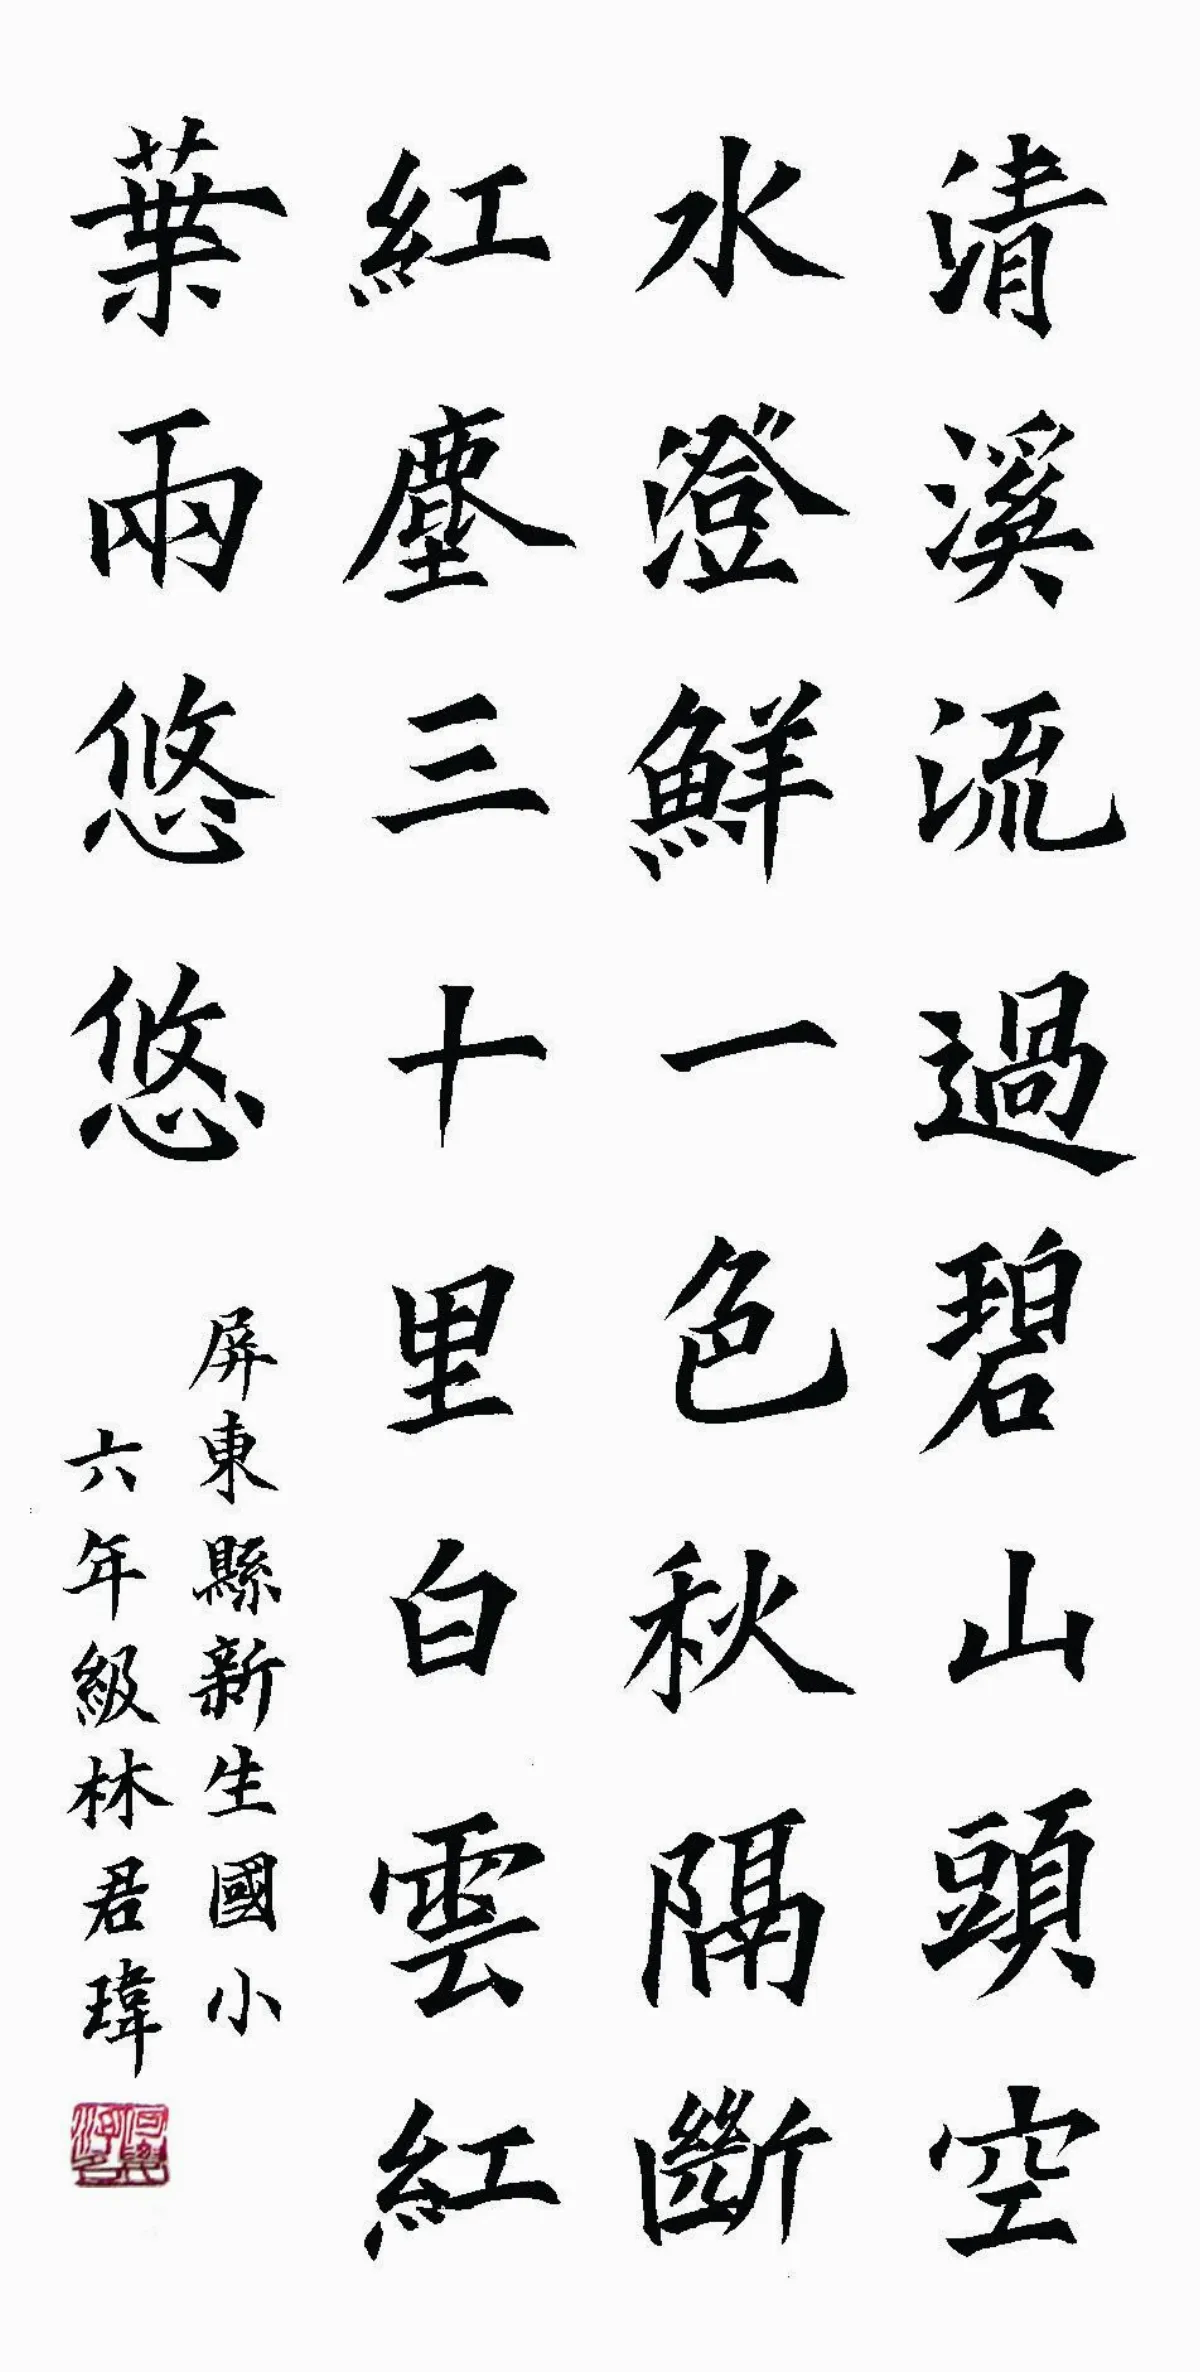 清溪流過碧山頭空
水澄鮮一色秋隔斷
紅塵三十里白雲紅
葉兩悠悠
屏東縣新生國小
六年級林君瑋